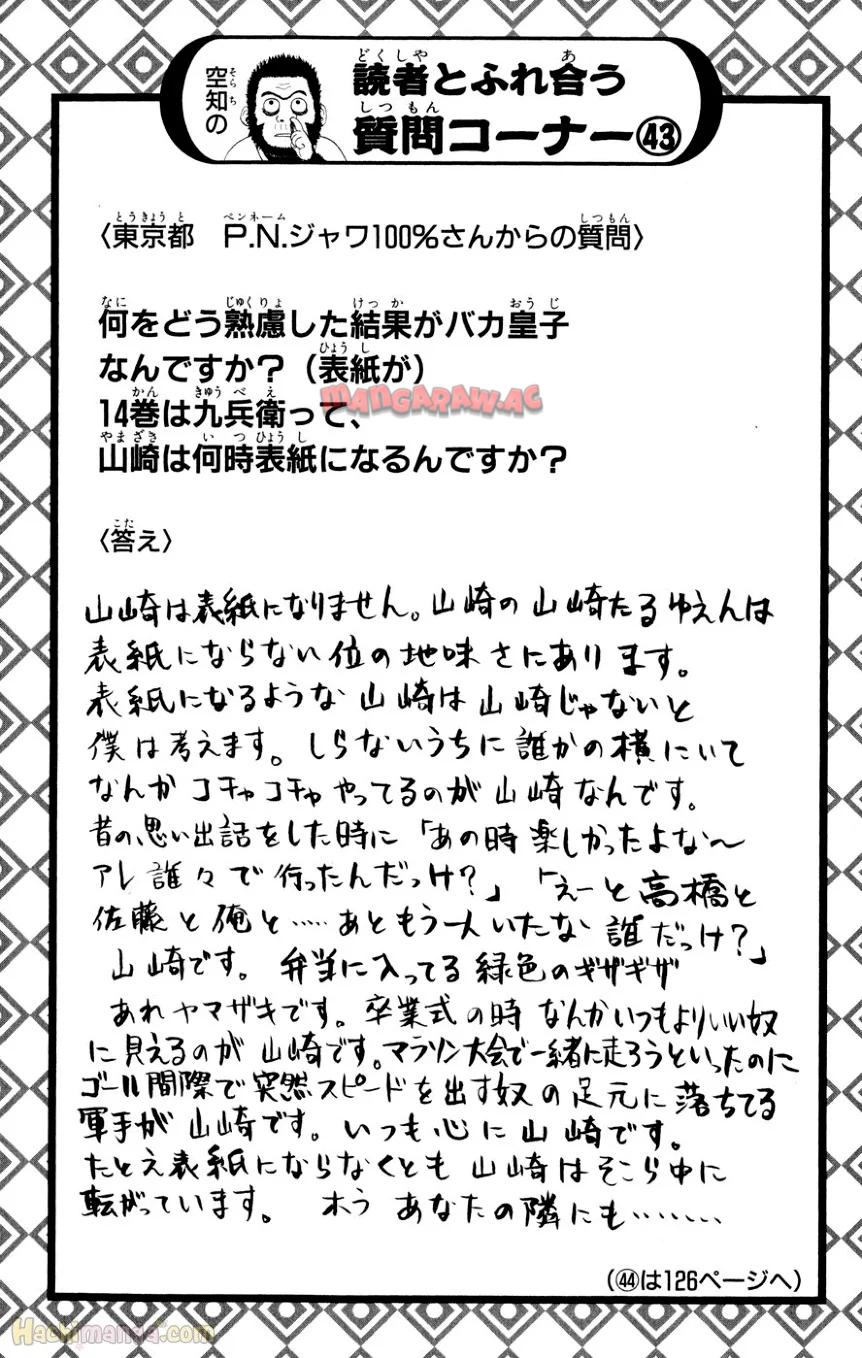 空知の
読者とふれ合う
質問コーナー㊸
〈東京都 P.N.ジャワ100%さんからの質問〉
何をどう熟慮した結果がバカ皇子
なんですか？（表紙が）
14巻は九兵衛って、
山崎は何時表紙になるんですか？
〈答え〉
山崎は表紙になりません。山崎の山崎たるゆえんは
表紙にならない位の地味さにあります。
表紙になるような山崎は山崎じゃないと
僕は考えます。しらないうちに誰かの横にいて
なんかコチャコチャやってるのが山崎なんです。
昔の思い出話をした時に「あの時楽しかったよな〜
アレ誰々で行ったんだっけ？」「えーと高橋と
佐藤と俺と……あともう一人いたな誰だっけ？」
山崎です。弁当に入ってる緑色のギザギザ
あれヤマザキです。卒業式の時なんかいつもよりいい奴
に見えるのが山崎です。マラソン大会で一緒に走ろうといったのに
ゴール間際で突然スピードを出す奴の足元に落ちてる
軍手が山崎です。いつも心に山崎です。
たとえ表紙にならなくとも山崎はそこら中に
転がっています。ホラあなたの隣にも………
（㊹は126ページへ）
MANGARAW.AC
Hachimanga.com